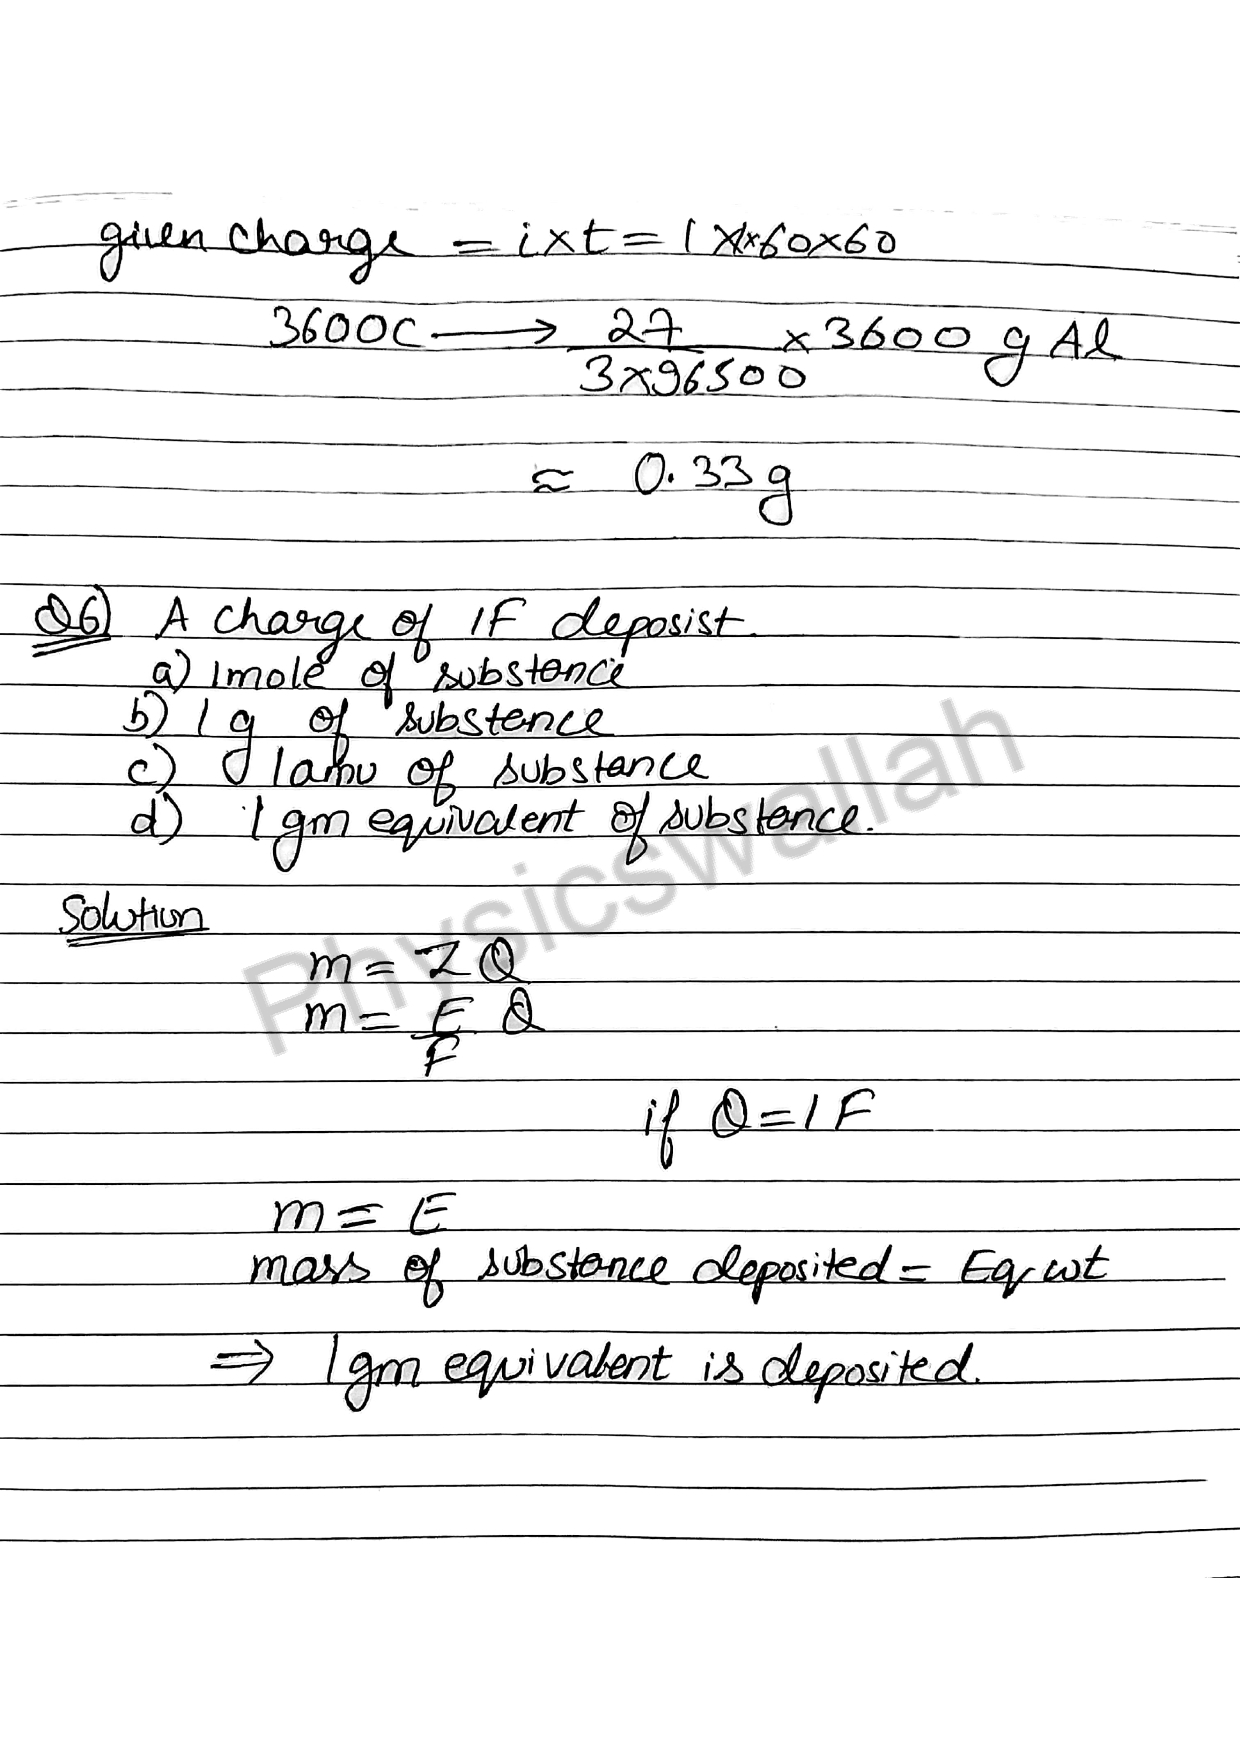 given charge = i×t = 1×1×60×60
3600C → 27/3×96500 × 3600 g Al
≈ 0.33g
Q6) A charge of 1F deposist.
a) 1mole of substance
b) 1 g of substence
c) 1amu of substance
d) 1 gm equivalent of substance.
Solution
m = ZQ
m = E/F Q
if Q = 1F
m = E
mass of substance deposited = Eq wt
⇒ 1gm equivalent is deposited.
Physicswallah